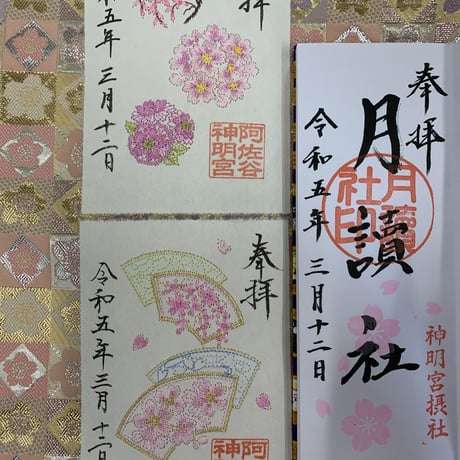 奉拝
月讀社
月讀
社印
神明宮摂社
令和五年 三月十二日
拝
阿佐谷
神明宮
和五年三月十二日
奉拝
阿
神
令和五年三月十二日